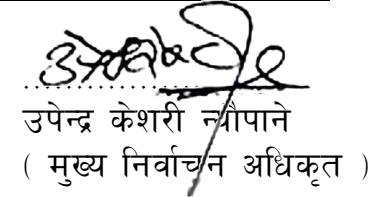 उपेन्द्र केशरी न्यौपाने
( मुख्य निर्वाचन अधिकृत )